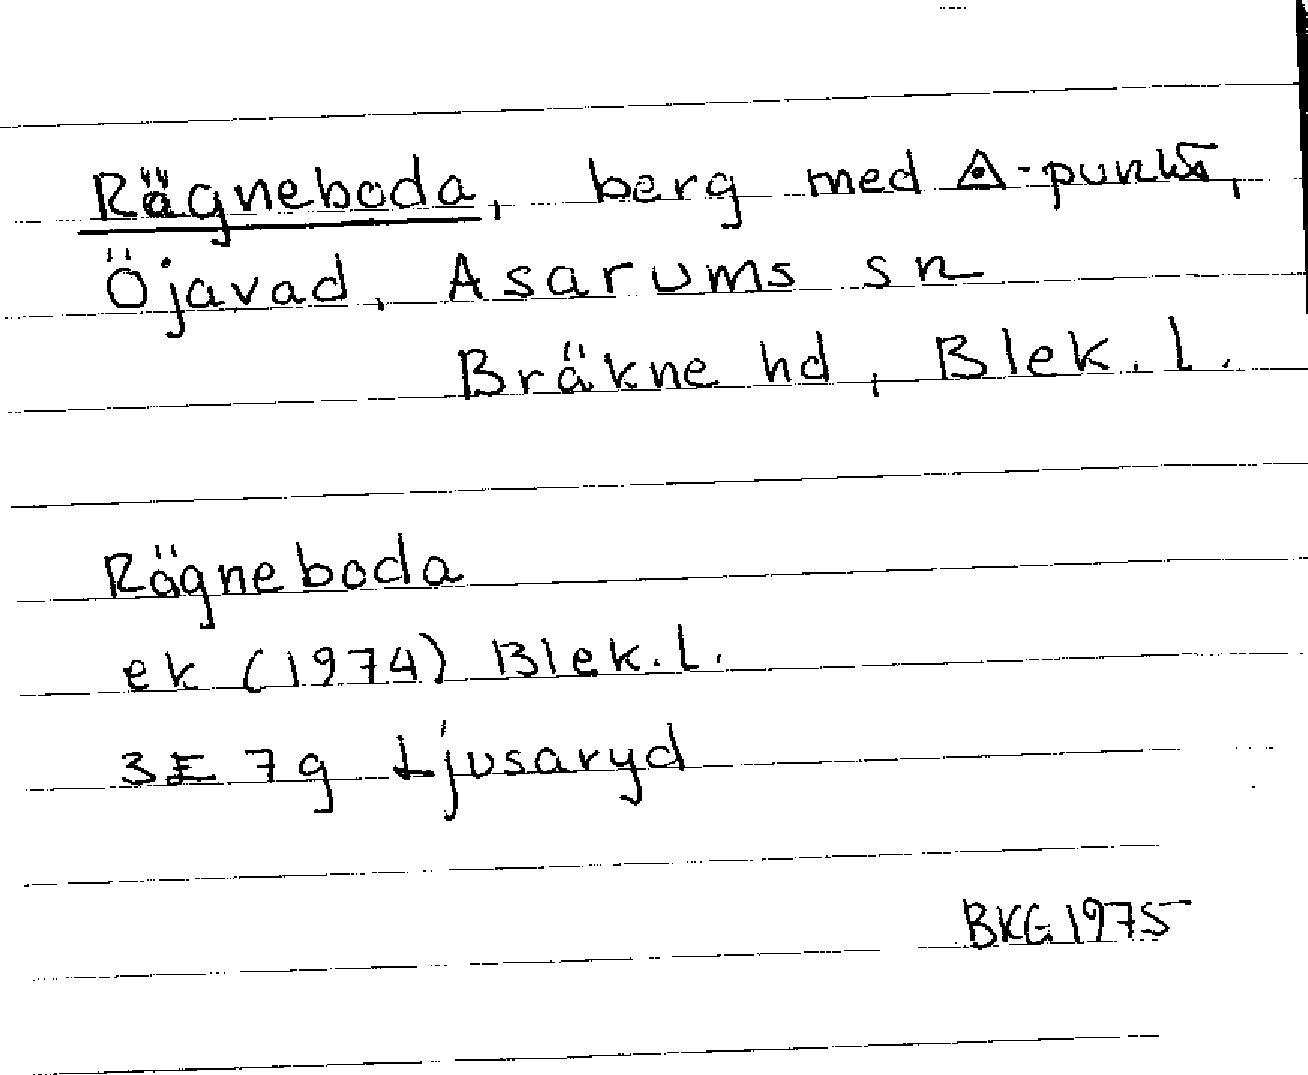 Rägneboda, berg med ◬-punkt,
Öjavad, Asarums sn
Bräkne hd, Blek. l.
Rägneboda
ek (1974) Blek. l.
3E 7g Ljusaryd
BKG 1975